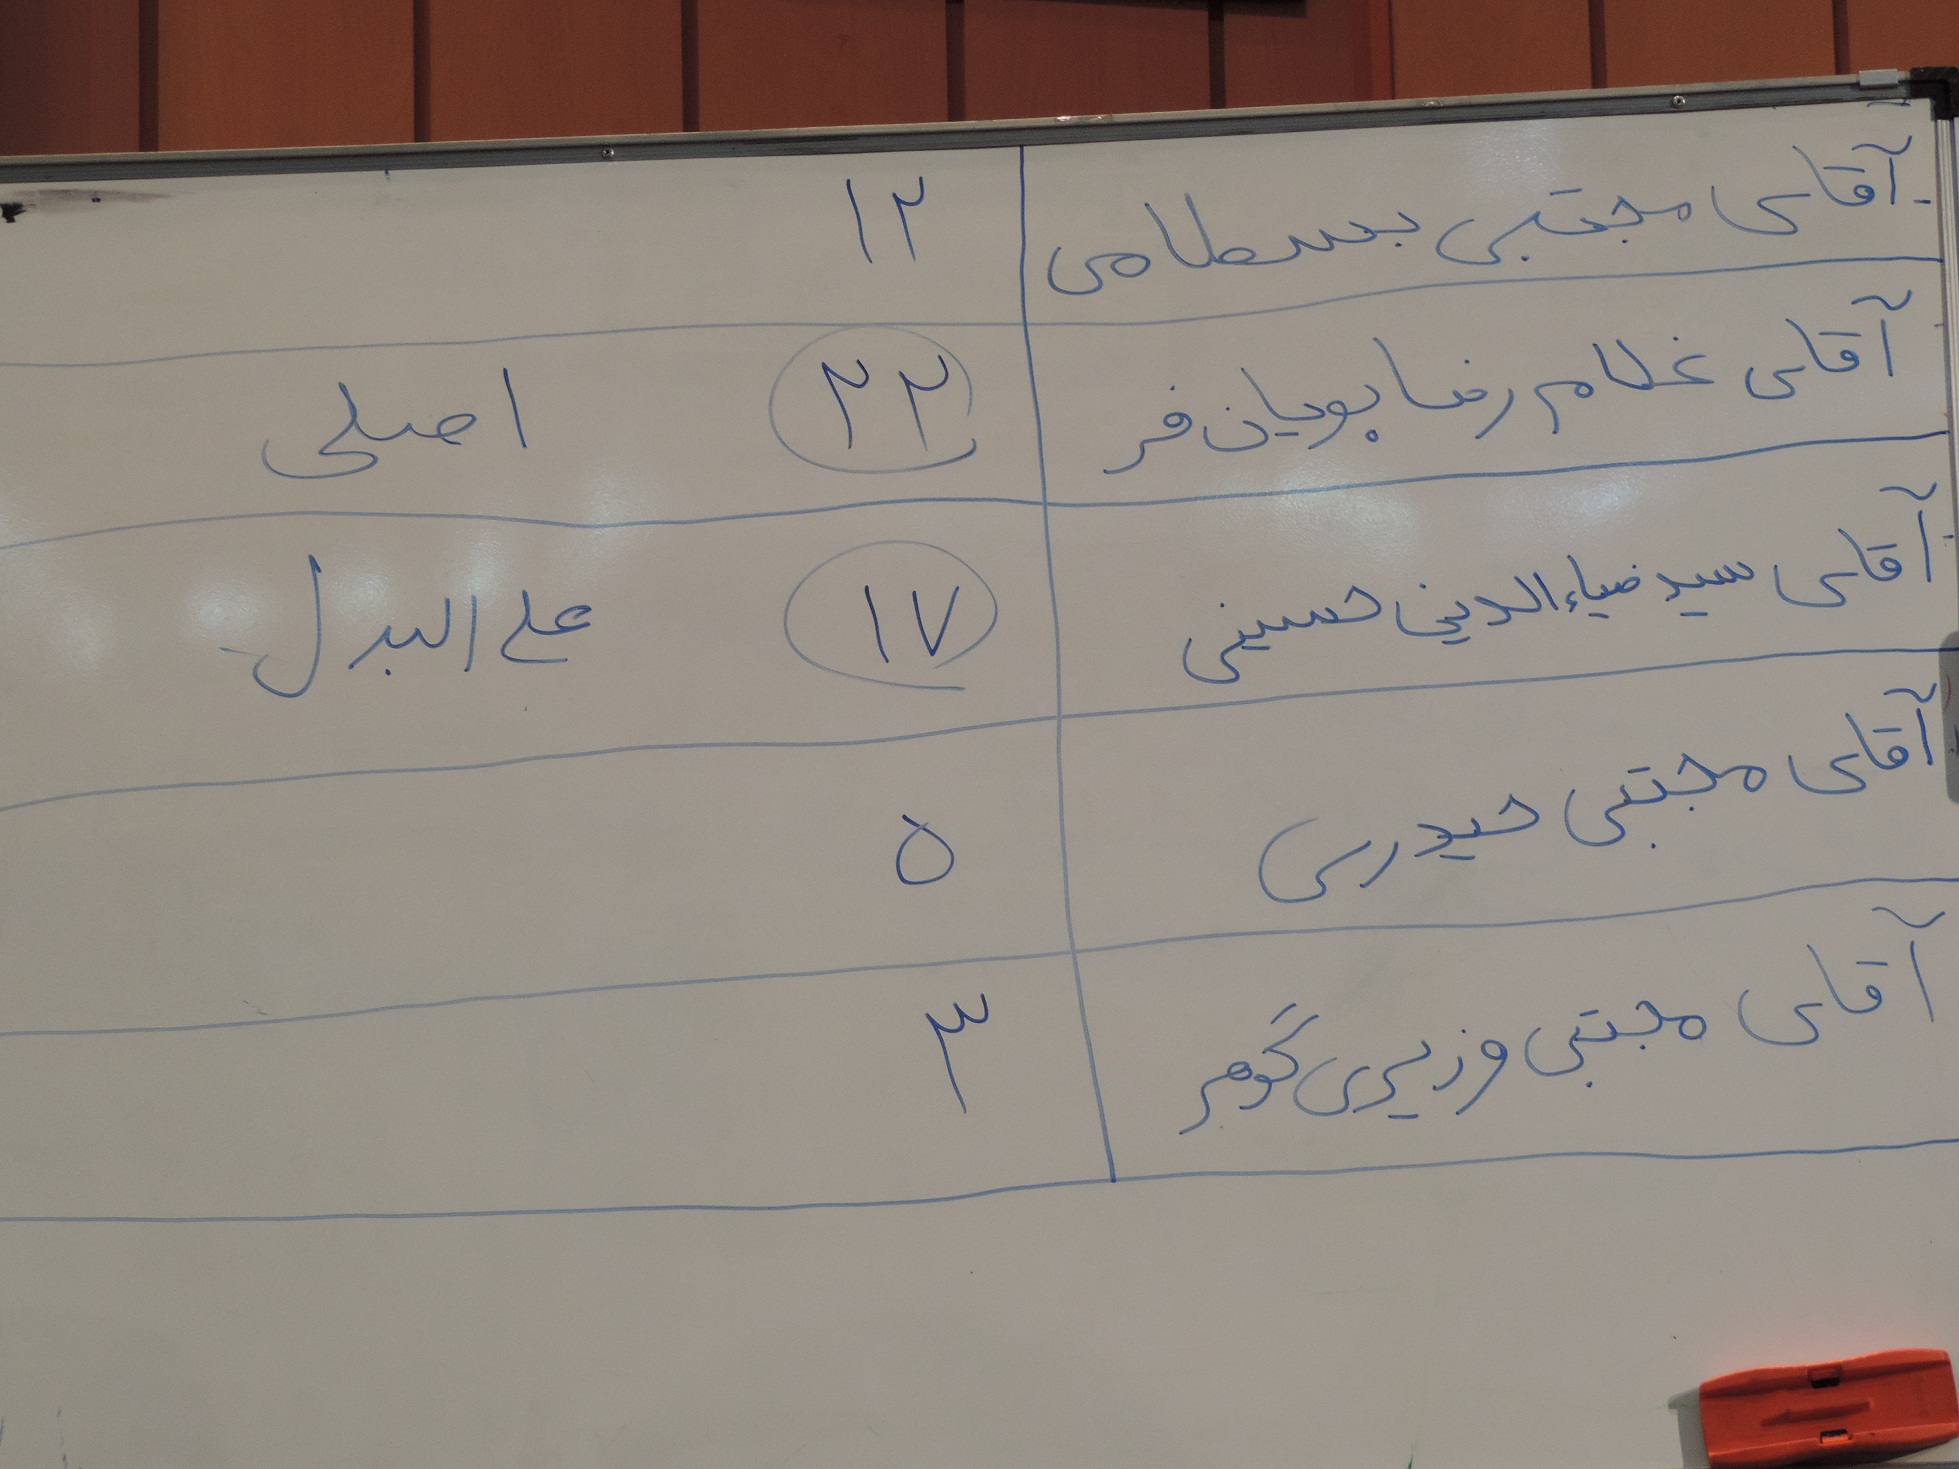 آقای مجتبی بسطامی ۱۲
آقای غلام رضا پویان فر ۲۲ اصلی
آقای سید ضیاءالدین حسینی ۱۷ علی البدل
آقای مجتبی حیدری ۵
آقای مجتبی وزیری گوهر ۳